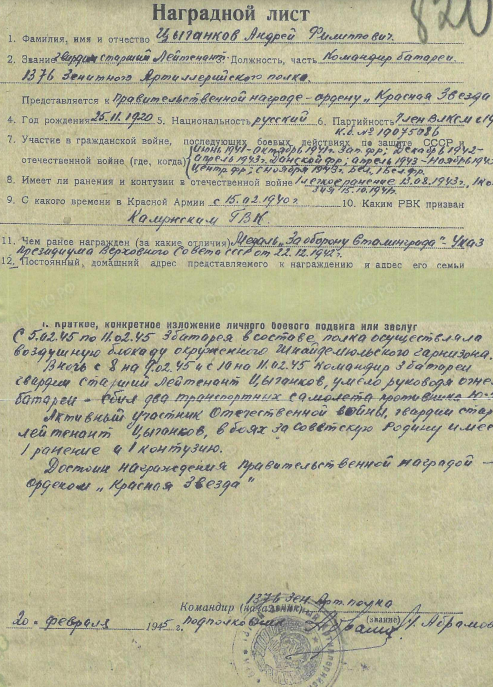 Наградной лист
820
1. Фамилия, имя и отчество Цыганков Андрей Филиппович.
2. Звание гвардии старший лейтенант. Должность, часть Командир батареи
1376 Зенитного Артиллерийского полка.
Представляется к правительственной награде - ордену „Красная Звезда
4. Год рождения 25.11.1920 5. Национальность русский 6. Партийность Член ВЛКСМ с
к.б. № 19075086
7. Участие в гражданской войне, последующих боевых действиях по защите СССР и
отечественной войне (где, когда) Июнь 1941 - октябрь 1941г. Зап. фр; Декабрь 1942 -
апрель 1943г. Донской фр; апрель 1943 - ноябрь 1943
Центр. фр; с ноября 1943г. Бел, 1 Бел. фр.
8. Имеет ли ранения и контузии в отечественной войне 1 легкое ранение 13.08.1943г, 1
15.10.1941г.
9. С какого времени в Красной Армии с 15.02.1940г. 10. Каким РВК призван
Калужским ГВК
11. Чем ранее награжден (за какие отличия) Медаль „За оборону Сталинграда" - Указ
Президиума Верховного Совета СССР от 22.12.1942г.
12. Постоянный, домашний адрес представляемого к награждению и адрес его семьи
I. Краткое, конкретное изложение личного боевого подвига или заслуг
С 5.02.45 по 11.02.45 3 батарея в составе полка осуществляла
воздушную блокаду окруженного Шнайдемюльского гарнизона.
В ночь с 8 на 9.02.45 и с 10 на 11.02.45 командир 3 батареи
гвардии старший лейтенант Цыганков, умело руководя огнем
батареи - сбил два транспортных самолета противника
Активный участник Отечественной войны, гвардии стар
лейтенант Цыганков, в боях за Советскую Родину имеет
1 ранение и 1 контузию.
Достоин награждения правительственной наградой -
орденом „Красная Звезда"
1376 Зен. Арт. полка
Командир (начальник)
20 - февраля 1945 г. подполковник (звание) Абрамов